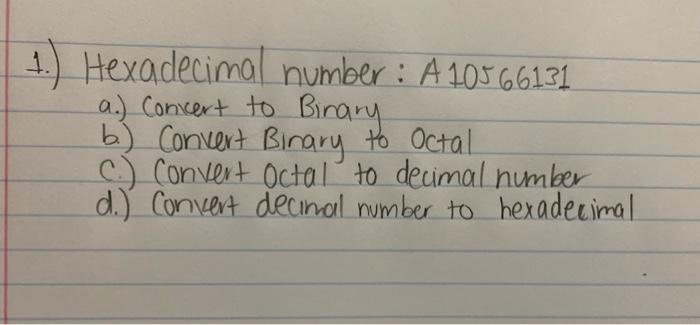 1.) Hexadecimal number: A10566131
a.) Convert to Binary
b.) Convert Binary to Octal
C.) Convert Octal to decimal number
d.) Convert decimal number to hexadecimal